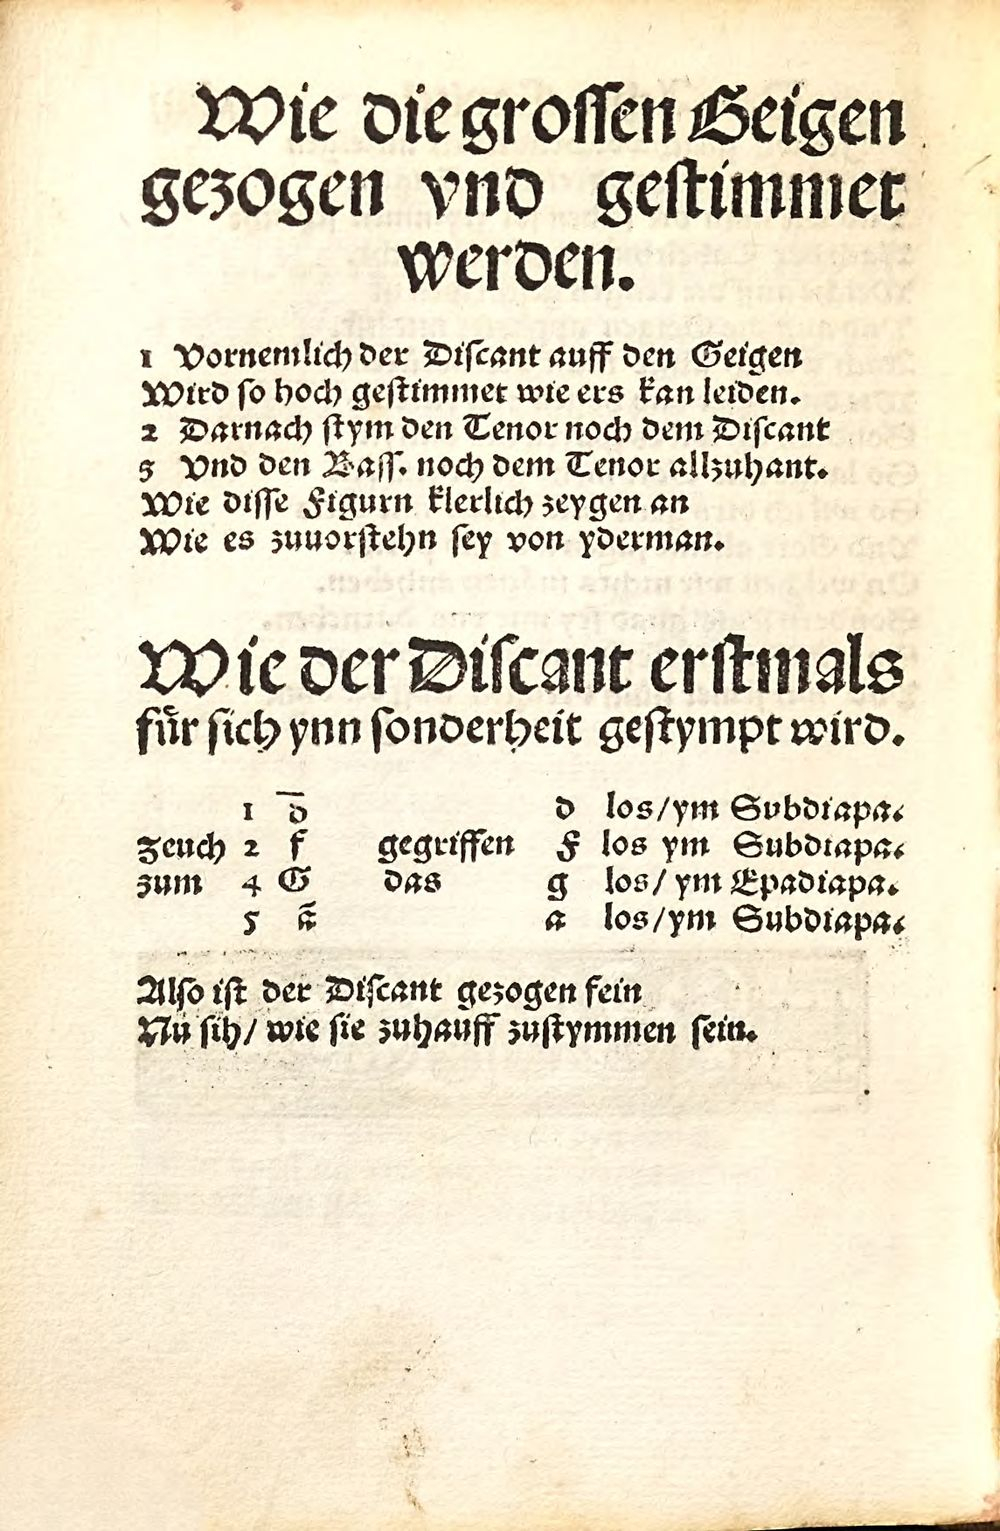 Wie die groſſen Geigen
gezogen vnd geſtimmet
werden.
1 Vornemlich der Diſcant auff den Geigen
Wird ſo hoch geſtimmet wie ers kan leiden.
2 Darnach ſtym den Tenor noch dem Diſcant
3 Vnd den Baſſ. noch dem Tenor allzuhant.
Wie diſſe Figurn klerlich zeygen an
Wie es zuuorſtehn ſey von yderman.
Wie der Diſcant erſtmals
fuͤr ſich ynn ſonderheit geſtympt wird.
1 d̅ d los/ym Subdiapa.
zeuch 2 f gegriffen F los ym Subdiapa.
zum 4 G das g los/ ym Epadiapa.
5 a̅ a los/ym Subdiapa.
Alſo iſt der Diſcant gezogen fein
Nu ſih/ wie ſie zuhauff zuſtymmen ſein.